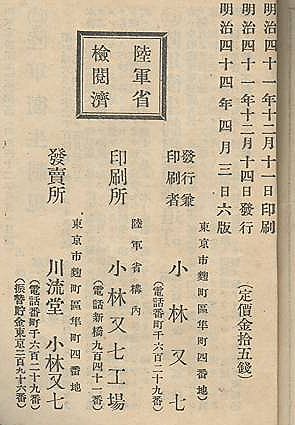 明治四十一年十二月十一日印刷
明治四十一年十二月十四日發行
明治四十四年四月三日六版
(定價金拾五錢)
陸軍省
檢閲濟
發行兼
印刷者
東京市麴町區隼町四番地
小林又七
(電話番町千六百二十九番)
印刷所
陸軍省構內
小林又七工場
(電話新橋九百四十一番)
發賣所
東京市麴町區隼町四番地
川流堂 小林又七
(電話番町千六百二十九番)
(振替貯金東京二百九十六番)